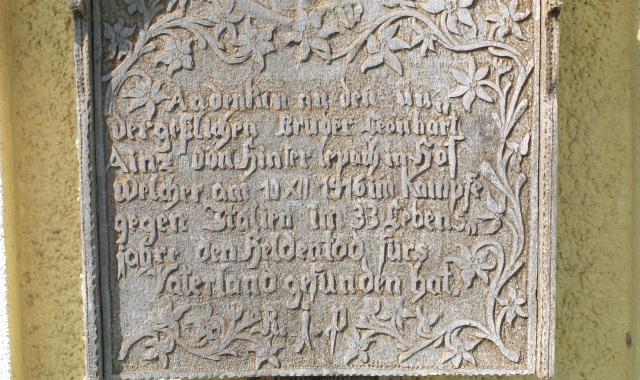 Andenken an den un„
vergeßlichen Bruder Leonhart
Ainz von Hinter in Hof
welcher am 10 XII 1916 im Kampfe
gegen Italien im 33 Lebens„
jahre den Heldentod fürs
Vaterland gefunden hat.
R. I. P